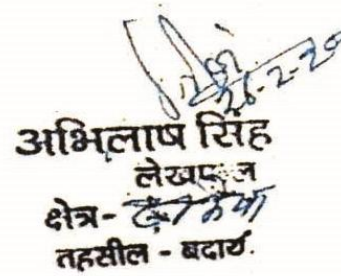 26-2-20
अभिलाष सिंह
लेखपाल
क्षेत्र-
तहसील - बदायूँ.